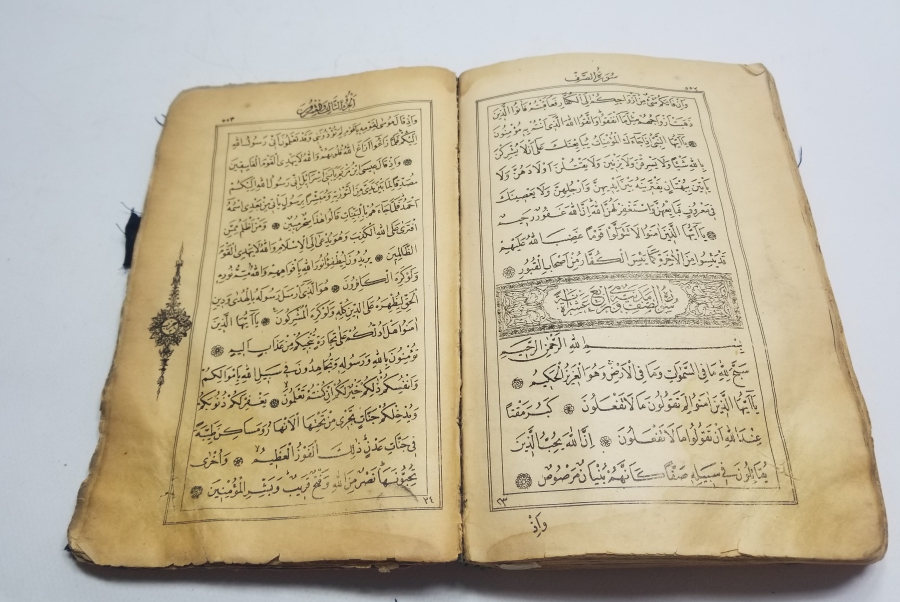 سورة الصف ٥٥٢
وَاِنْ فَاتَكُمْ شَيْءٌ مِنْ اَزْوَاجِكُمْ اِلَى الْكُفَّارِ فَعَاقَبْتُمْ فَاٰتُوا الَّذِينَ
ذَهَبَتْ اَزْوَاجُهُمْ مِثْلَ مَا اَنْفَقُوا وَاتَّقُوا اللهَ الَّذِي اَنْتُمْ بِهِ مُؤْمِنُونَ
يَا اَيُّهَا النَّبِيُّ اِذَا جَاءَكَ الْمُؤْمِنَاتُ يُبَايِعْنَكَ عَلٰى اَنْ لَا يُشْرِكْنَ
بِاللهِ شَيْئًا وَلَا يَسْرِقْنَ وَلَا يَزْنِينَ وَلَا يَقْتُلْنَ اَوْلَادَهُنَّ وَلَا
يَأْتِينَ بِبُهْتَانٍ يَفْتَرِينَهُ بَيْنَ اَيْدِيهِنَّ وَاَرْجُلِهِنَّ وَلَا يَعْصِينَكَ
فِي مَعْرُوفٍ فَبَايِعْهُنَّ وَاسْتَغْفِرْ لَهُنَّ اللهَ اِنَّ اللهَ غَفُورٌ رَحِيمٌ
يَا اَيُّهَا الَّذِينَ اٰمَنُوا لَا تَتَوَلَّوْا قَوْمًا غَضِبَ اللهُ عَلَيْهِمْ
قَدْ يَئِسُوا مِنَ الْاٰخِرَةِ كَمَا يَئِسَ الْكُفَّارُ مِنْ اَصْحَابِ الْقُبُورِ
سورة الصف مدنية وهي اربع عشرة اية
بِسْمِ اللهِ الرَّحْمٰنِ الرَّحِيمِ
سَبَّحَ لِلّٰهِ مَا فِي السَّمٰوَاتِ وَمَا فِي الْاَرْضِ وَهُوَ الْعَزِيزُ الْحَكِيمُ
يَا اَيُّهَا الَّذِينَ اٰمَنُوا لِمَ تَقُولُونَ مَا لَا تَفْعَلُونَ كَبُرَ مَقْتًا
عِنْدَ اللهِ اَنْ تَقُولُوا مَا لَا تَفْعَلُونَ اِنَّ اللهَ يُحِبُّ الَّذِينَ
يُقَاتِلُونَ فِي سَبِيلِهِ صَفًّا كَاَنَّهُمْ بُنْيَانٌ مَرْصُوصٌ
١٣
وَاِذْ
٥٥٣
وَاِذْ قَالَ مُوسٰى لِقَوْمِهِ يَا قَوْمِ لِمَ تُؤْذُونَنِي وَقَدْ تَعْلَمُونَ اَنِّي رَسُولُ اللهِ
اِلَيْكُمْ فَلَمَّا زَاغُوا اَزَاغَ اللهُ قُلُوبَهُمْ وَاللهُ لَا يَهْدِي الْقَوْمَ الْفَاسِقِينَ
وَاِذْ قَالَ عِيسَى ابْنُ مَرْيَمَ يَا بَنِي اِسْرَائِلَ اِنِّي رَسُولُ اللهِ اِلَيْكُمْ
مُصَدِّقًا لِمَا بَيْنَ يَدَيَّ مِنَ التَّوْرٰيةِ وَمُبَشِّرًا بِرَسُولٍ يَأْتِي مِنْ بَعْدِي اسْمُهُ
اَحْمَدُ فَلَمَّا جَاءَهُمْ بِالْبَيِّنَاتِ قَالُوا هٰذَا سِحْرٌ مُبِينٌ وَمَنْ اَظْلَمُ مِمَّنِ
افْتَرٰى عَلَى اللهِ الْكَذِبَ وَهُوَ يُدْعٰى اِلَى الْاِسْلَامِ وَاللهُ لَا يَهْدِي الْقَوْمَ
الظَّالِمِينَ يُرِيدُونَ لِيُطْفِئُوا نُورَ اللهِ بِاَفْوَاهِهِمْ وَاللهُ مُتِمُّ نُورِهِ
وَلَوْ كَرِهَ الْكَافِرُونَ هُوَ الَّذِي اَرْسَلَ رَسُولَهُ بِالْهُدٰى وَدِينِ
الْحَقِّ لِيُظْهِرَهُ عَلَى الدِّينِ كُلِّهِ وَلَوْ كَرِهَ الْمُشْرِكُونَ يَا اَيُّهَا الَّذِينَ
اٰمَنُوا هَلْ اَدُلُّكُمْ عَلٰى تِجَارَةٍ تُنْجِيكُمْ مِنْ عَذَابٍ اَلِيمٍ
تُؤْمِنُونَ بِاللهِ وَرَسُولِهِ وَتُجَاهِدُونَ فِي سَبِيلِ اللهِ بِاَمْوَالِكُمْ
وَاَنْفُسِكُمْ ذٰلِكُمْ خَيْرٌ لَكُمْ اِنْ كُنْتُمْ تَعْلَمُونَ يَغْفِرْ لَكُمْ ذُنُوبَكُمْ
وَيُدْخِلْكُمْ جَنَّاتٍ تَجْرِي مِنْ تَحْتِهَا الْاَنْهَارُ وَمَسَاكِنَ طَيِّبَةً
فِي جَنَّاتِ عَدْنٍ ذٰلِكَ الْفَوْزُ الْعَظِيمُ وَاُخْرٰى
تُحِبُّونَهَا نَصْرٌ مِنَ اللهِ وَفَتْحٌ قَرِيبٌ وَبَشِّرِ الْمُؤْمِنِينَ
١٤